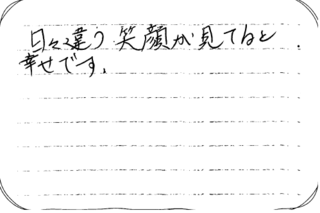 日々違う笑顔が見てると
幸せです。